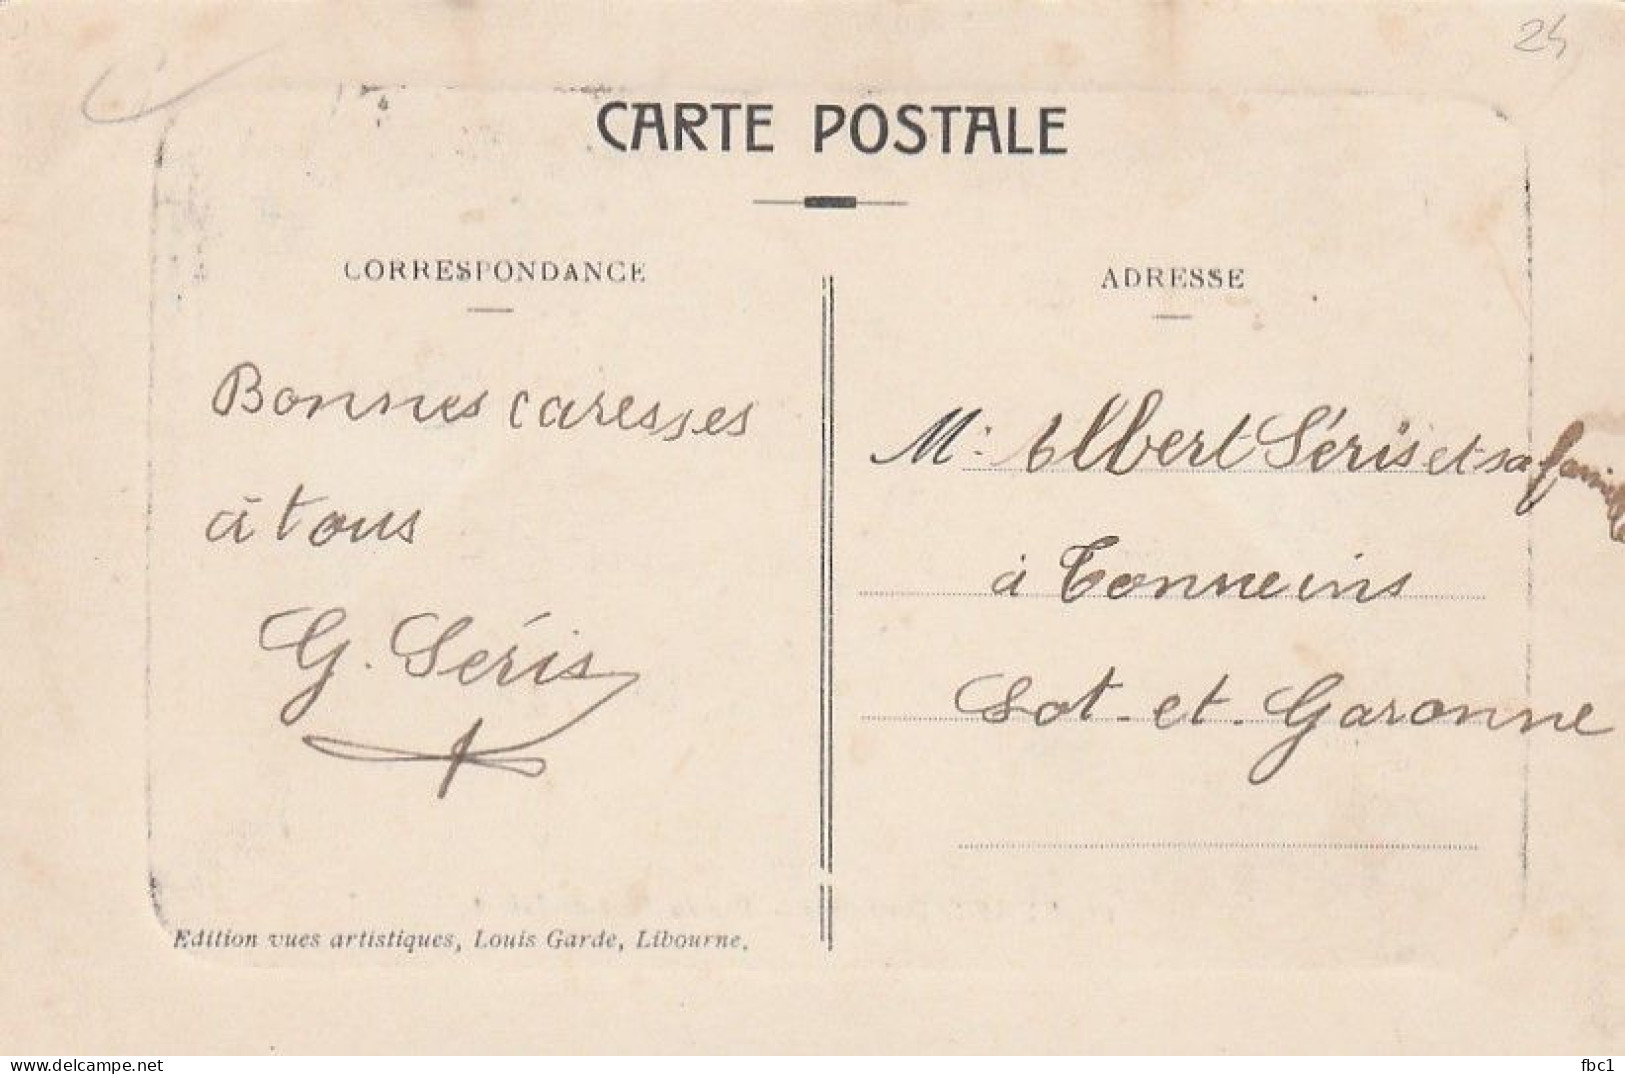 24
CARTE POSTALE
CORRESPONDANCE
Bonnes caresses
à tous
G. Séris
Edition vues artistiques, Louis Garde, Libourne.
ADRESSE
M. Albert Séris et sa famille
à Tonneins
Lot-et-Garonne
delcampe.net
fbc1